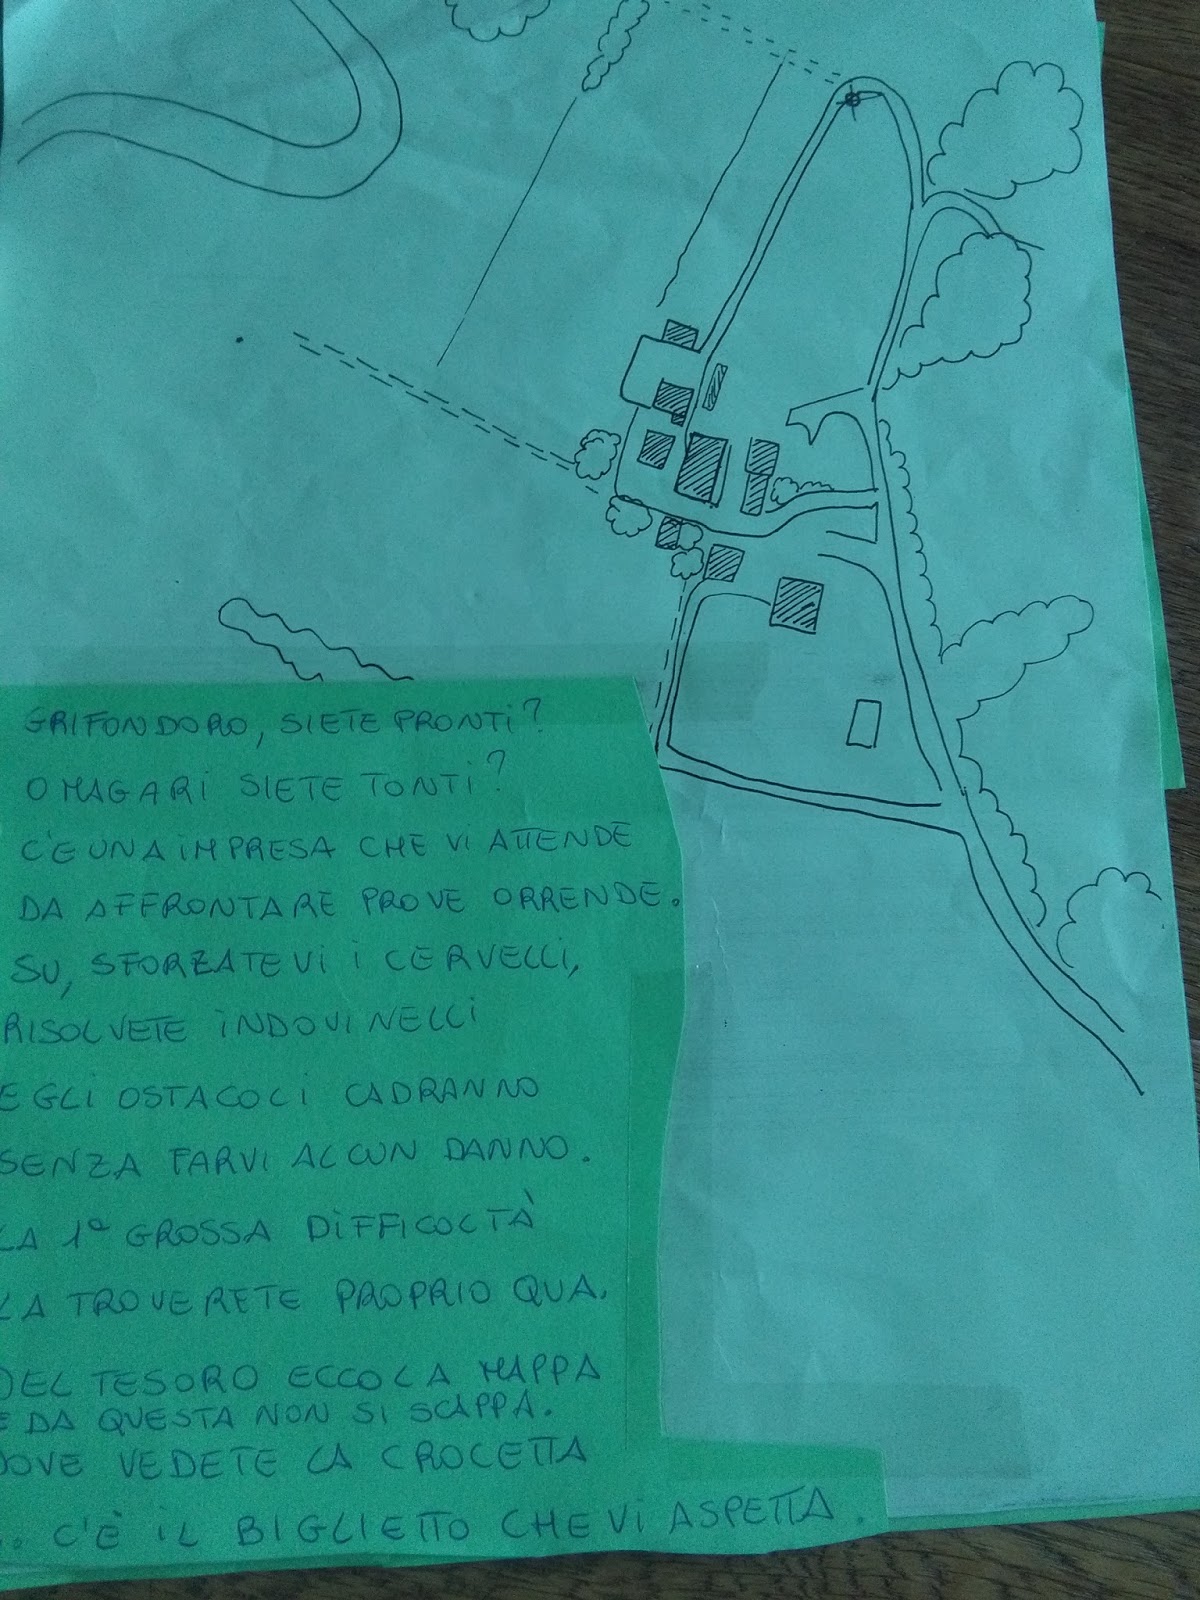 GRIFONDORO, SIETE PRONTI?
O MAGARI SIETE TONTI?
C'E UNA IMPRESA CHE VI ATTENDE
DA AFFRONTARE PROVE ORRENDE.
SU, SFORZATEVI I CERVELLI,
RISOLVETE INDOVINELLI
E GLI OSTACOLI CADRANNO
SENZA FARVI ALCUN DANNO.
LA 1ª GROSSA DIFFICOLTÀ
LA TROVERETE PROPRIO QUA.
DEL TESORO ECCO LA MAPPA
E DA QUESTA NON SI SCAPPA.
DOVE VEDETE LA CROCETTA
.. C'È IL BIGLIETTO CHE VI ASPETTA.